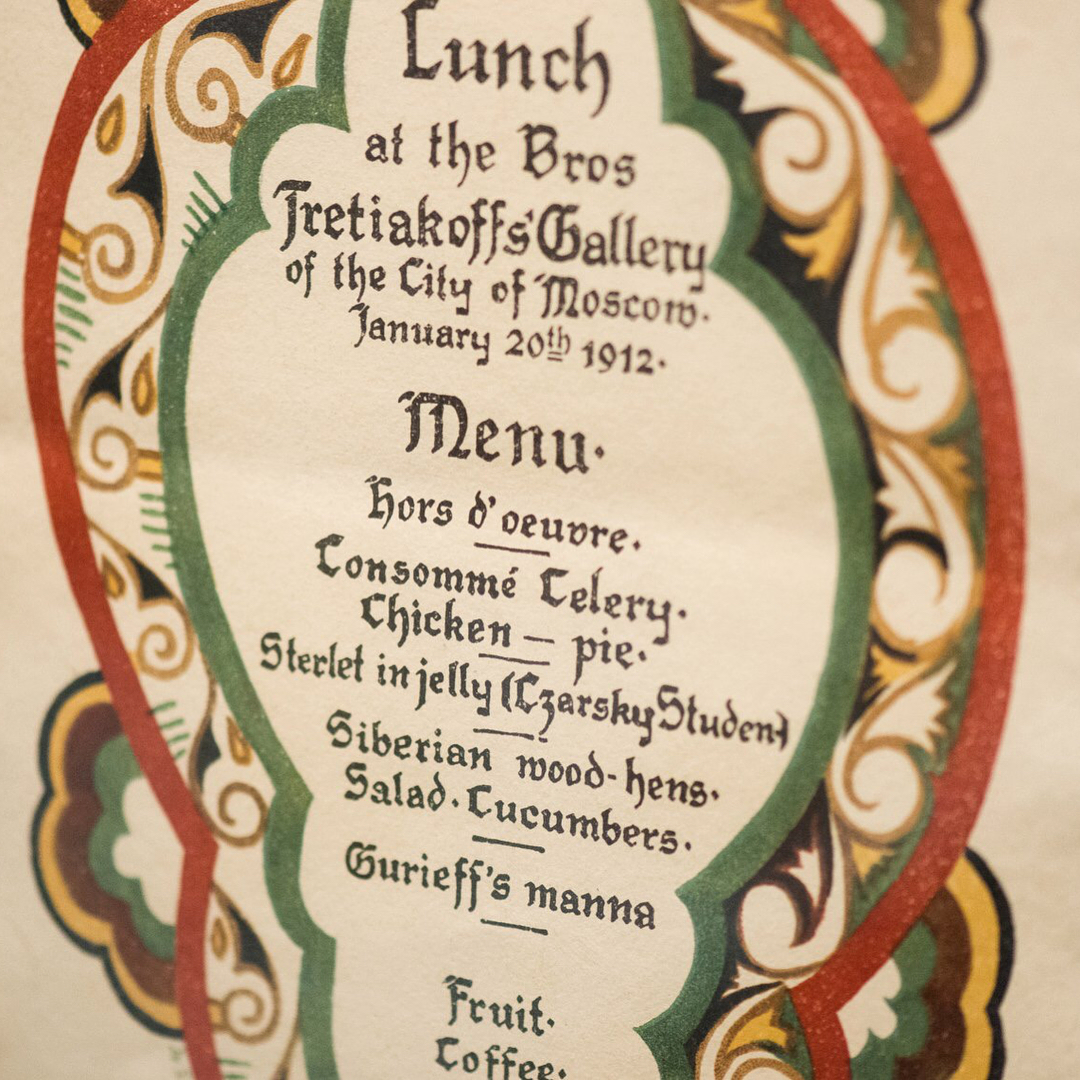 Lunch
at the Bros
Tretiakoffs' Gallery
of the City of Moscow.
January 20th 1912.
Menu.
Hors d'oeuvre.
Consommé Celery.
Chicken — pie.
Sterlet in jelly (Czarsky Studen)
Siberian wood-hens.
Salad. Cucumbers.
Gurieff's manna
Fruit.
Coffee.